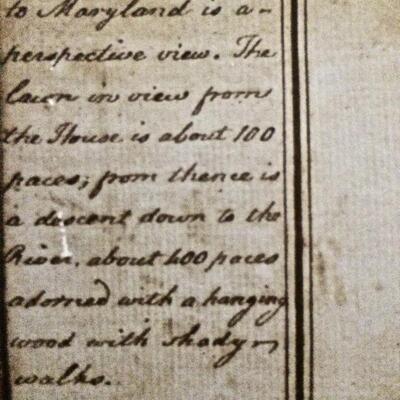 to Maryland is a -
perspective view. The
Lawn in view from
the House is about 100
paces; from thence is
a descent down to the
River, about 400 paces
adorned with a hanging
wood with shady
walks.